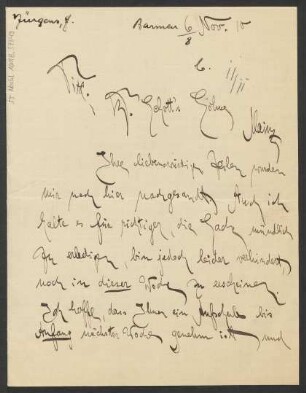 Jürgens, F.
Barmen 6/8 Nov. 10
Tit.
B. Schott's Söhne
Mainz
Ihre liebenswürdigen Zeilen wurden
mir nach hier nachgesandt. Auch ich
halte es für richtiger die Sache mündlich
zu erledigen, bin jedoch leider verhindert
noch in dieser Woche zu erscheinen.
Ich hoffe, dass Ihnen ein Aufschub bis
Anfang nächster Woche genehm ist und